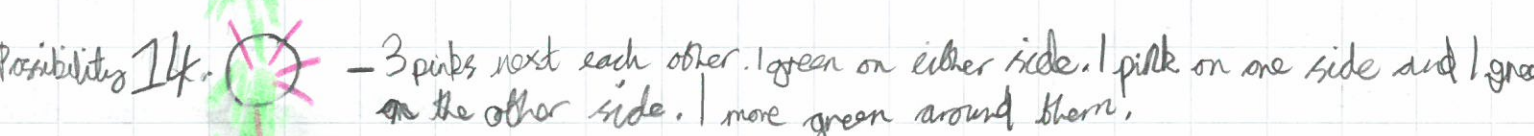 Possibility 14. – 3 pinks next each other. 1 green on either side. 1 pink on one side and 1 gree
on the other side. 1 more green around them.